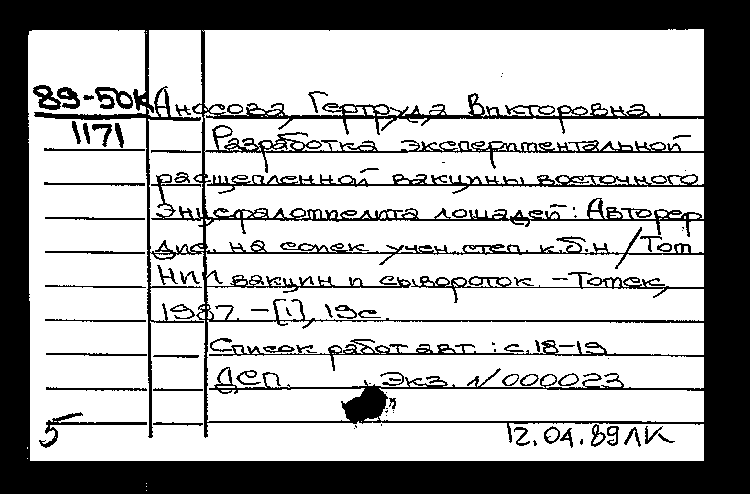 89-50К Аносова, Гертруда Викторовна.
1171 Разработка экспериментальной
расщепленной вакцины восточного
энцефаломиелита лошадей : Автореф
дис. на соиск. учен. степ. к.б.н. / Том.
НИИ вакцин и сывороток. - Томск,
1987. - [1], 19с.
Список работ авт. : с. 18-19.
ДСП. Экз. N/000023
5 12.04.89ЛК